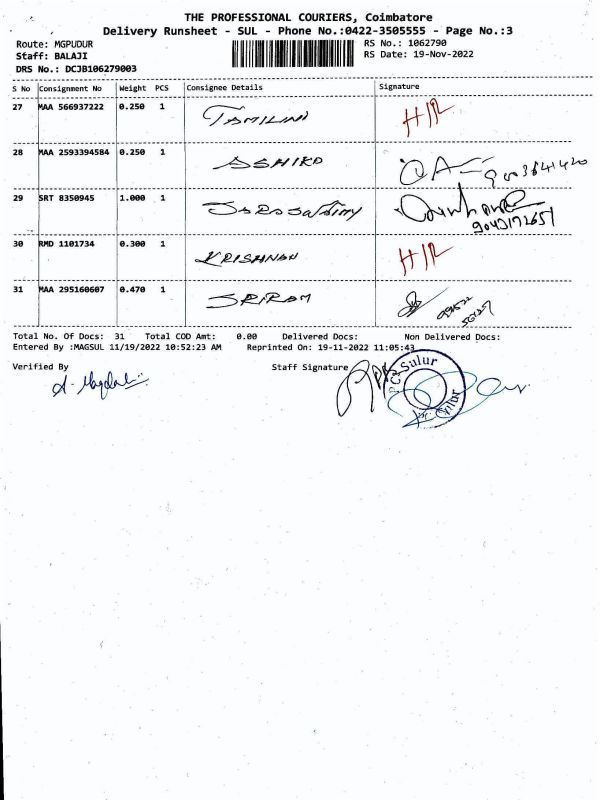 THE PROFESSIONAL COURIERS, Coimbatore
Delivery Runsheet - SUL - Phone No.:0422-3505555 - Page No.:3
Route: MGPUDUR
RS No.: 1062790
Staff: BALAJI
RS Date: 19-Nov-2022
DRS No.: DCJB106279003
S No Consignment No Weight PCS Consignee Details Signature
27 MAA 566937222 0.250 1 TAMILINI
28 MAA 2593394584 0.250 1 ASHIKO
29 SRT 8350945 1.000 1
30 RMD 1101734 0.300 1 KRISHNAN
31 MAA 295160607 0.470 1 SRIRAM
Total No. Of Docs: 31 Total COD Amt: 0.00 Delivered Docs: Non Delivered Docs:
Entered By :MAGSUL 11/19/2022 10:52:23 AM Reprinted On: 19-11-2022 11:05:43
Verified By Staff Signature
PCS Sulur